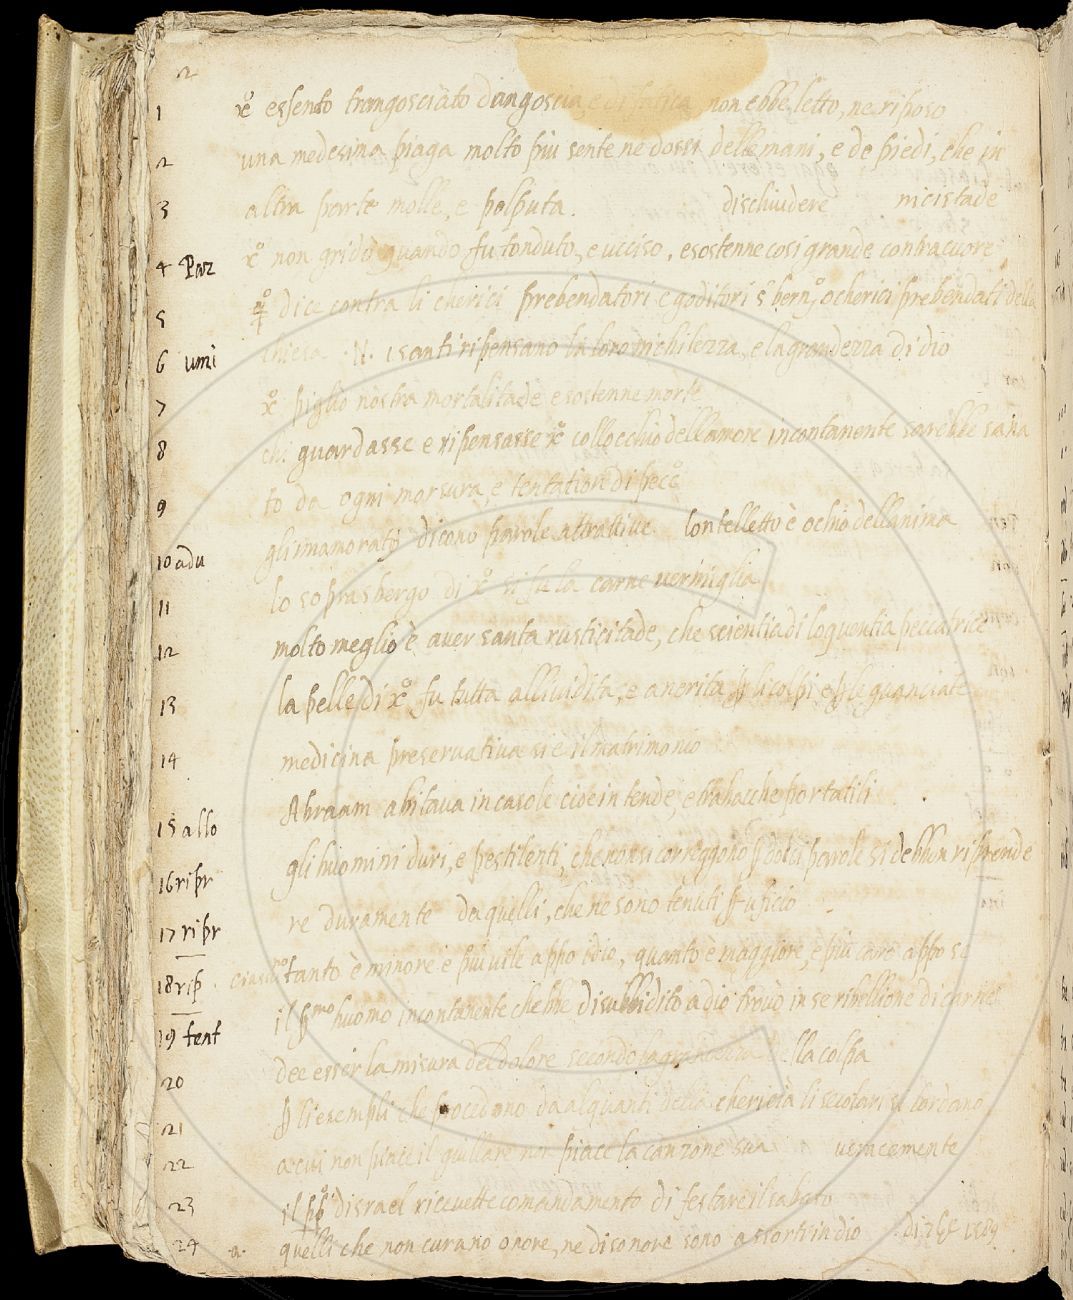 2
1 xº essento trangosciato dangoscia, e di fatica non ebbe letto, ne riposo
2 una medesima piaga molto più sente ne dossi delle mani, e de piedi, che in
3 altra parte molle, e polputa. dischiudere nicistade
4 Paz xº non gridò quando fu tonduto, e ucciso, e sostenne così grande contracuore
5 dice contra li cherici prebendatori e goditori s bernº. o cherici prebendati della
6 umi chiesa .N. i santi ripensano la loro nichilezza, e la grandezza di dio
7 xº pigliò nostra mortalitade e sostenne morte
8 chi guardasse e ripensasse xº collocchio dellamore incontanente sarebbe sana
9 to da ogni morsura, e tentation di pecº
10 adu gli inamorati dicono parole attrattive. lontelletto è ochio dellanima
11 lo soprasbergo di xº si fu la carne vermiglia
12 molto meglio è aver santa rusticitade, che scientia di loquentia peccatrice
13 la pelle di xº fu tutta allividita, e anerita ꝑ li colpi e ꝑ le guanciate
14 medicina preservativa si e il matrimonio
Abraam abitava in casole cioè in tende, e trabacche portatili
15 allo gli huomini duri, e pestilenti, che non si correggono ꝑ dolci parole si debbon riprende
16 ripr re duramente da quelli, che ne sono tenuti ꝑ uficio
17 ripr tanto è minore e più vile appo idio, quanto e maggiore, e più caro appo se
18 rip il pmo huomo incontanente chebbe disubbidito a dio trovò in se ribellione di carne
19 tent dee esser la misura del dolore secondo la grandezza lla colpa
20 ꝑ li exempli che procedono da alquanti della chericia li secolari si lordano
21 a cui non piace il giullare non piace la canzone sua veracemente
22 il disrael ricevette comandamento di festare il sabato
23 quelli che non curano onore, ne disonore sono assorti in dio 1589
24 a.